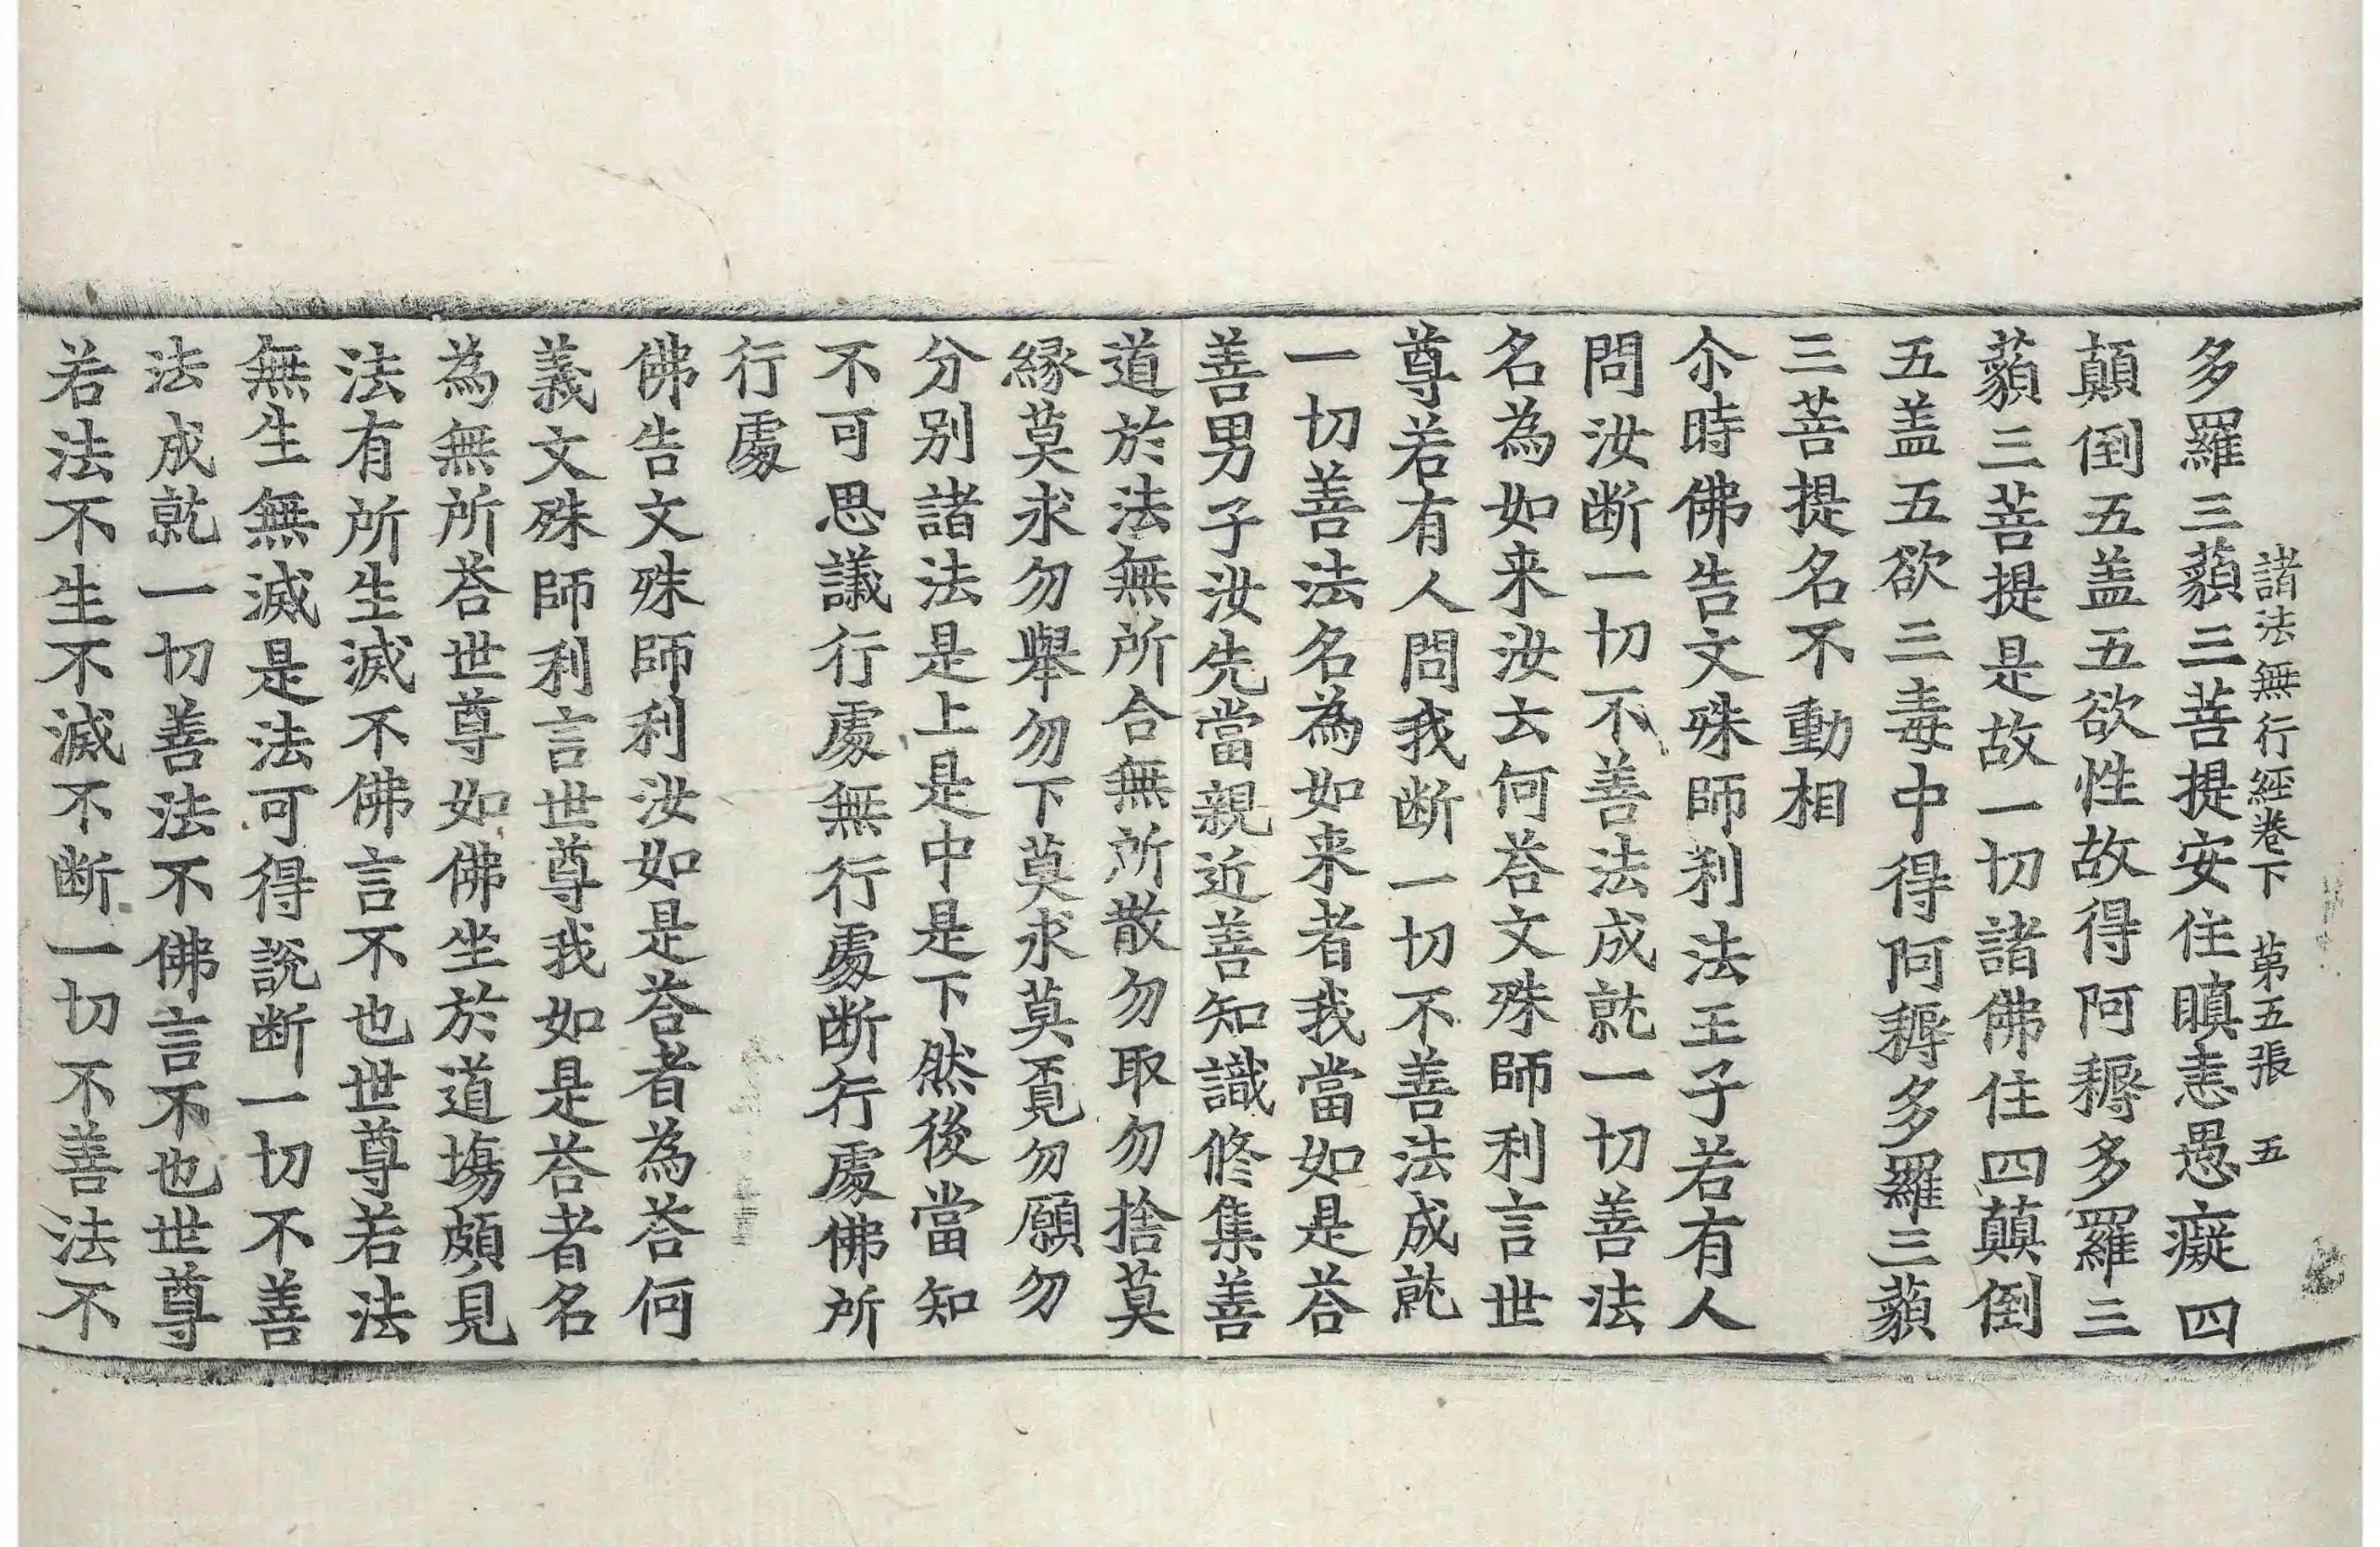 諸法無行經卷下 第五張 五
多羅三藐三菩提安住瞋恚愚癡四
顛倒五盖五欲性故得阿耨多羅三
藐三菩提是故一切諸佛住四顛倒
五盖五欲三毒中得阿耨多羅三藐
三菩提名不動相
尒時佛告文殊師利法王子若有人
問汝断一切不善法成就一切善法
名為如来汝云何荅文殊師利言世
尊若有人問我断一切不善法成就
一切善法名為如来者我當如是荅
善男子汝先當親近善知識修集善
道於法無所合無所散勿取勿捨莫
緣莫求勿舉勿下莫求莫覓勿願勿
分别諸法是上是中是下然後當知
不可思議行處無行處断行處佛所
行處
佛告文殊師利汝如是荅者為荅何
義文殊師利言世尊我如是荅者名
為無所荅世尊如佛坐於道塲頗見
法有所生滅不佛言不也世尊若法
無生無滅是法可得說断一切不善
法成就一切善法不佛言不也世尊
若法不生不滅不断一切不善法不